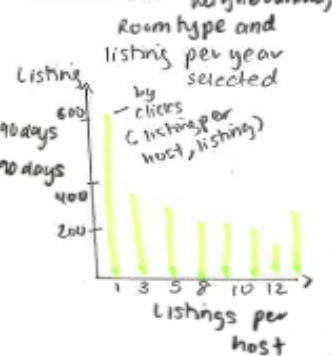 Room type and
listing per year
selected
Listing
by
clicks
(listing per
host, listing)
600
90 days
90 days
400
200
1 3 5 8 10 12
Listings per
host